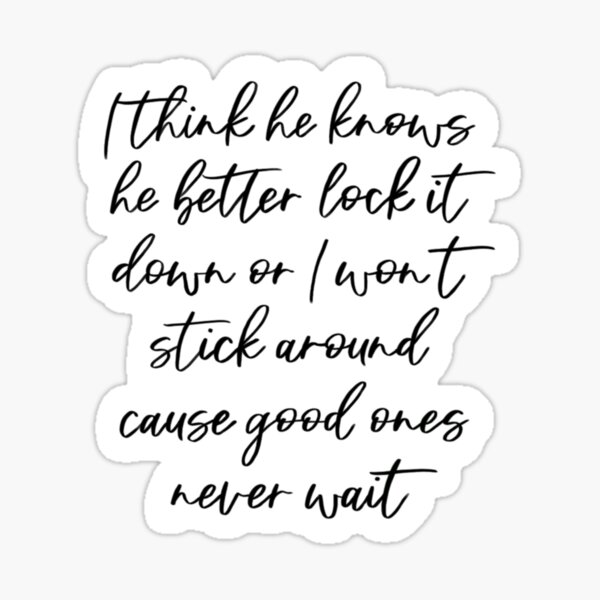 I think he knows
he better lock it
down or I won t
stick around
cause good ones
never wait